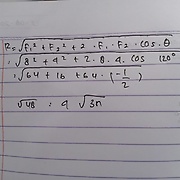 R = √F₁² + F₂² + 2 · F₁ · F₂ · cos θ
: √8² + 4² + 2 · 8 · 4 · cos 120°
: √64 + 16 + 64 · (-1/2)
√48 : 4 √3n